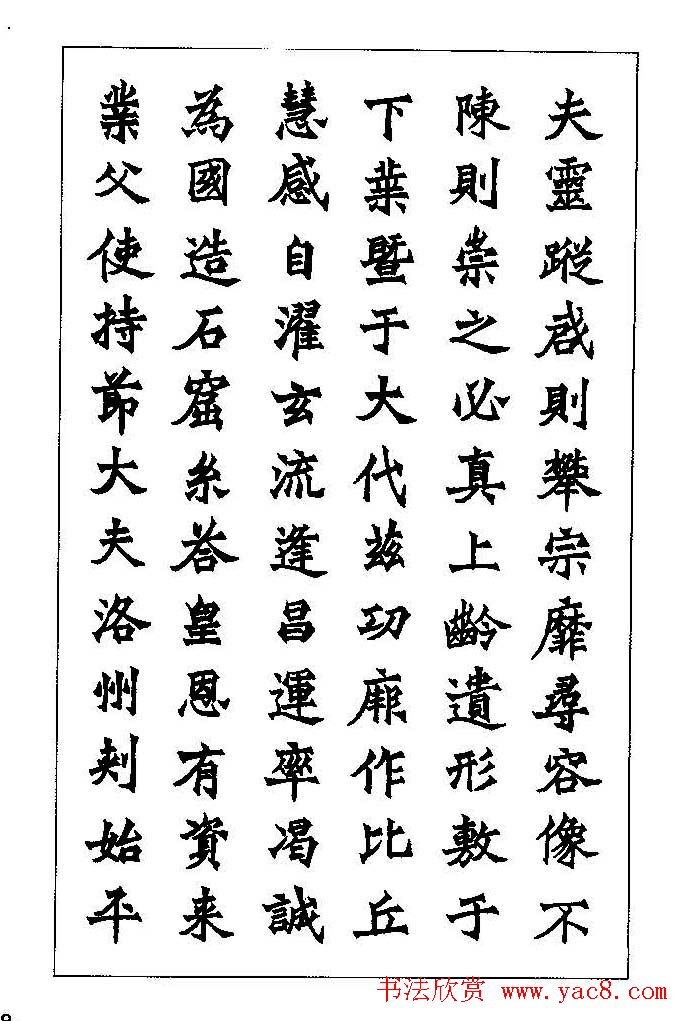 夫靈蹤啟則攀宗靡尋容像不
陳則崇之必真上齡遺形敷于
下葉暨于大代茲功厥作比丘
慧感自濯玄流逢昌運率渴誠
為國造石窟糸荅皇恩有資来
業父使持節大夫洛州刾始平
书法欣赏 www.yac8.com
9